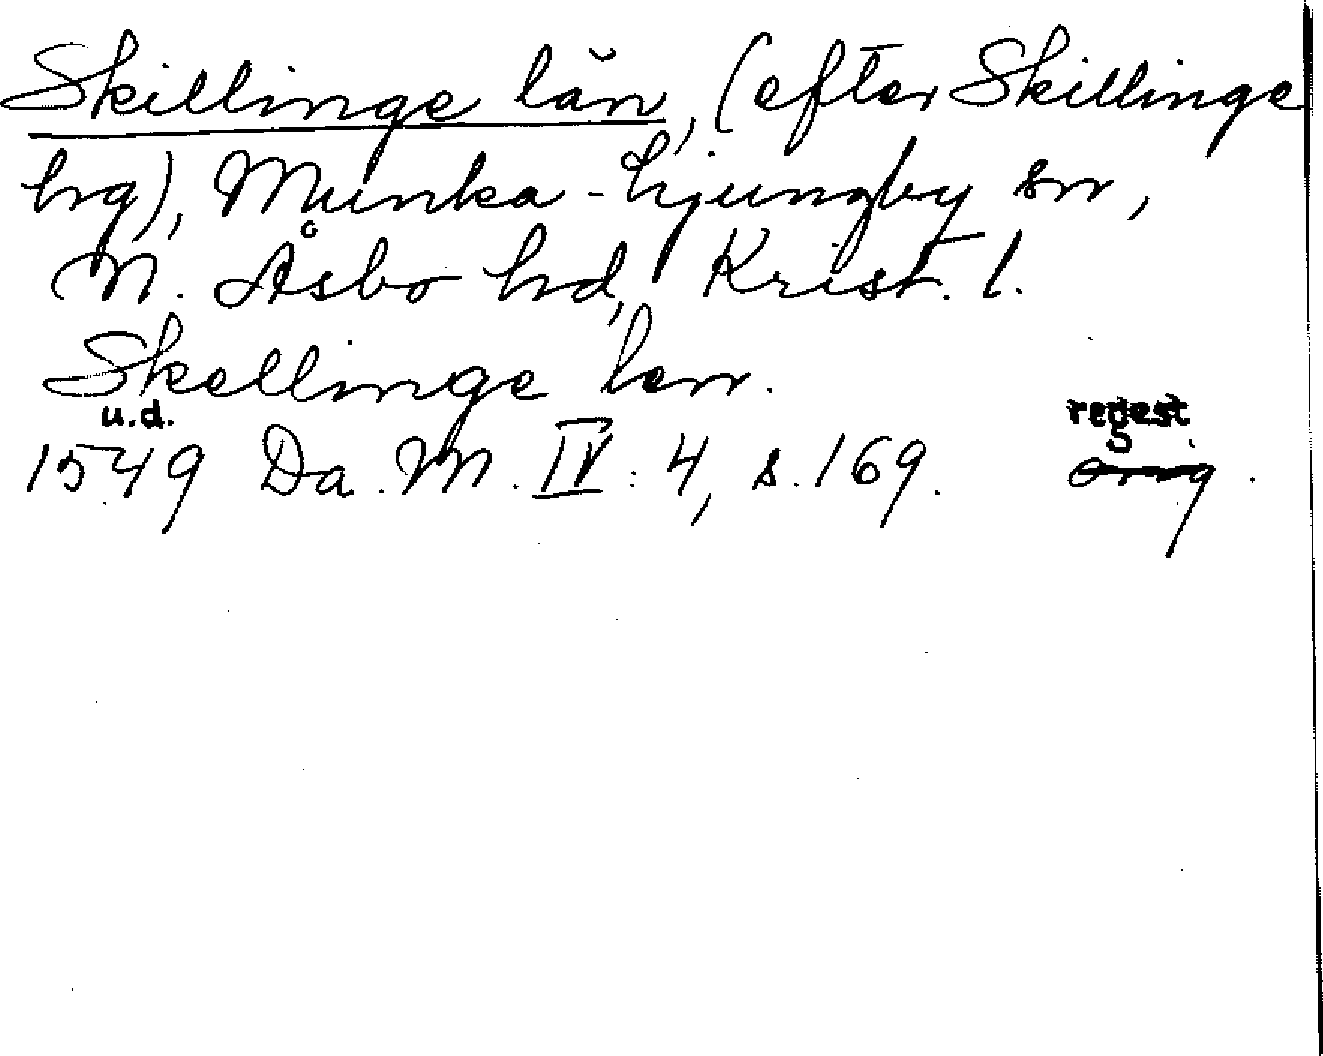 Skillinge län, (efter Skillinge
hrg), Munka-Ljungby sn,
N. Åsbo hrd, Krist. l.
Skellinge len.
u.d. regest
1549 Da. M. IV: 4, s. 169. Orig.